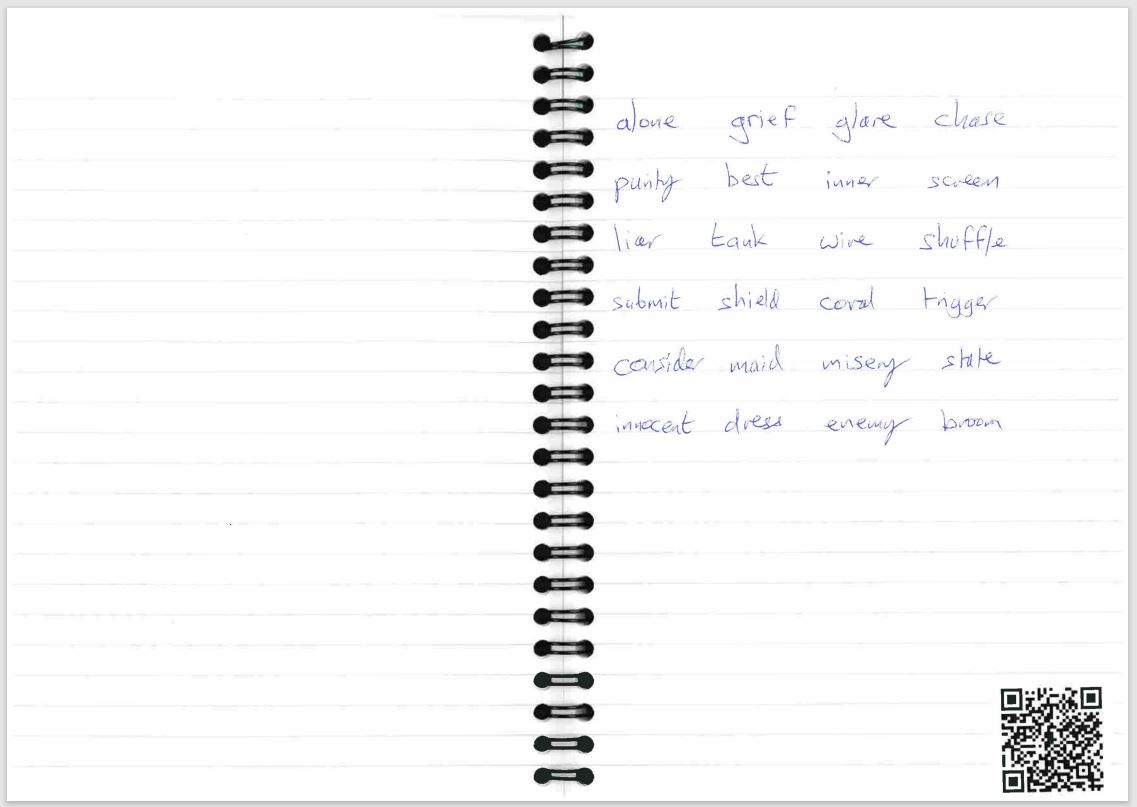 alone grief glare chase
purity best inner screen
liar tank wire shuffle
submit shield coral trigger
consider maid misery state
innocent dress enemy broom